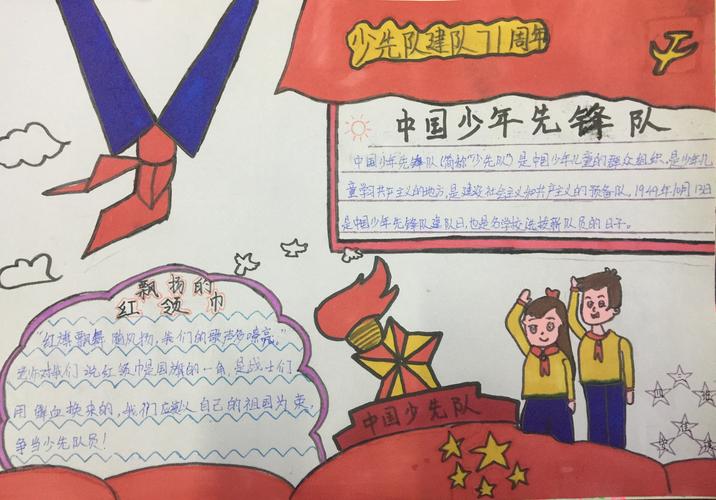 少先队建队71周年
中国少年先锋队
中国少年先锋队(简称"少先队")是中国少年儿童的群众组织,是少年儿
童学习共产主义的地方,是建设社会主义和共产主义的预备队。1949年10月13日
是中国少年先锋队建队日,也是各学校迎接新队员的日子。
飘扬的
红领巾
"红旗飘舞随风扬,我们的歌声多嘹亮。"
老师对我们说红领巾是国旗的一角,是战士们
用鲜血换来的,我们应该以自己的祖国为荣,
争当少先队员!
中国少先队